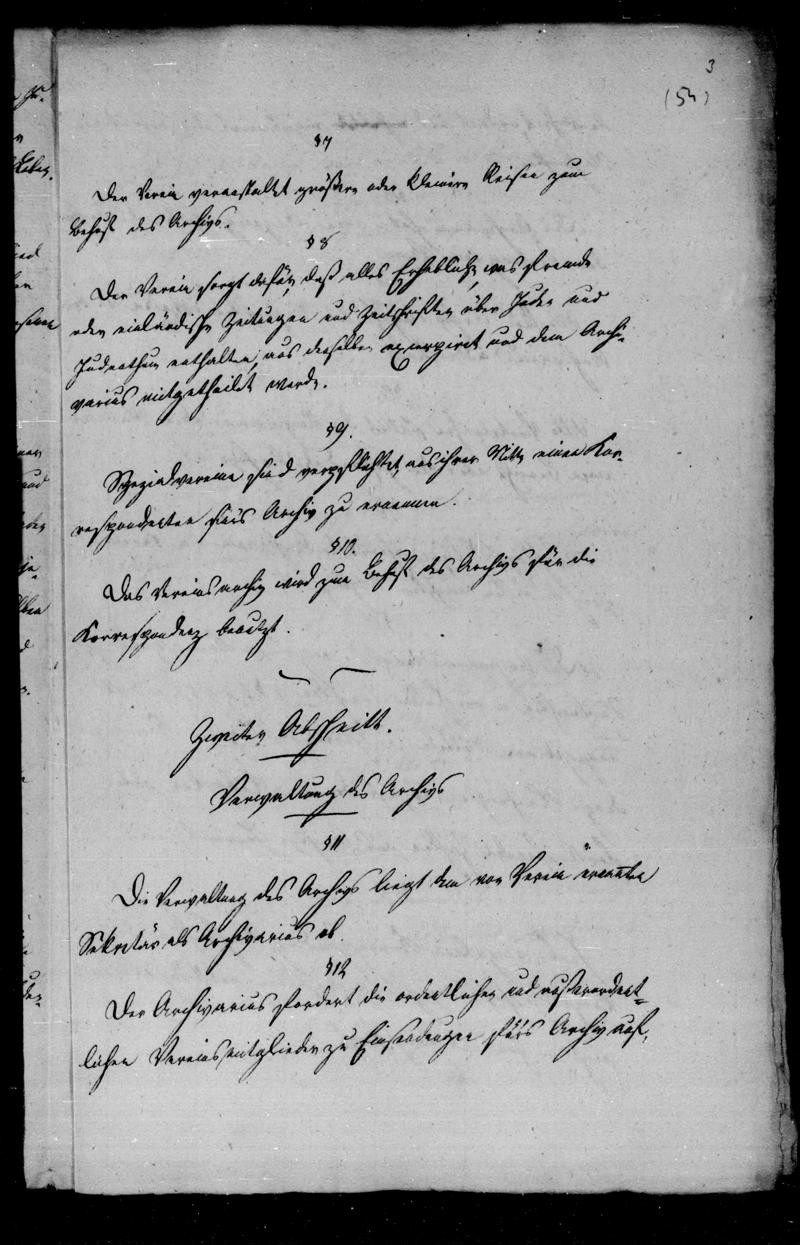 3
(54)
§7
Der Verein veranstaltet größere oder kleinere Reisen zum
Behuf des Archivs.
§8
Der Verein sorgt dafür, daß alles Erhebliche, was fremde
oder einländische Zeitungen und Zeitschriften über Juden und
Judenthum enthalten, aus denselben excerpirt und dem Archi-
varius mitgetheilt werde.
§9.
Spezialvereine sind verpflichtet, aus ihrer Mitte einen Kor-
respondenten fürs Archiv zu ernennen.
§10.
Das Vereinsarchiv wird zum Behuf des Archivs für die
Korrespondenz benutzt.
Zweiter Abschnitt.
Verwaltung des Archivs
§11
Die Verwaltung des Archivs liegt dem vom Verein ernannten
Sekretär als Archivarius ob.
§12
Der Archivarius fordert die ordentlichen und außerordent-
lichen Vereinsmitglieder zu Einsendungen fürs Archiv auf,